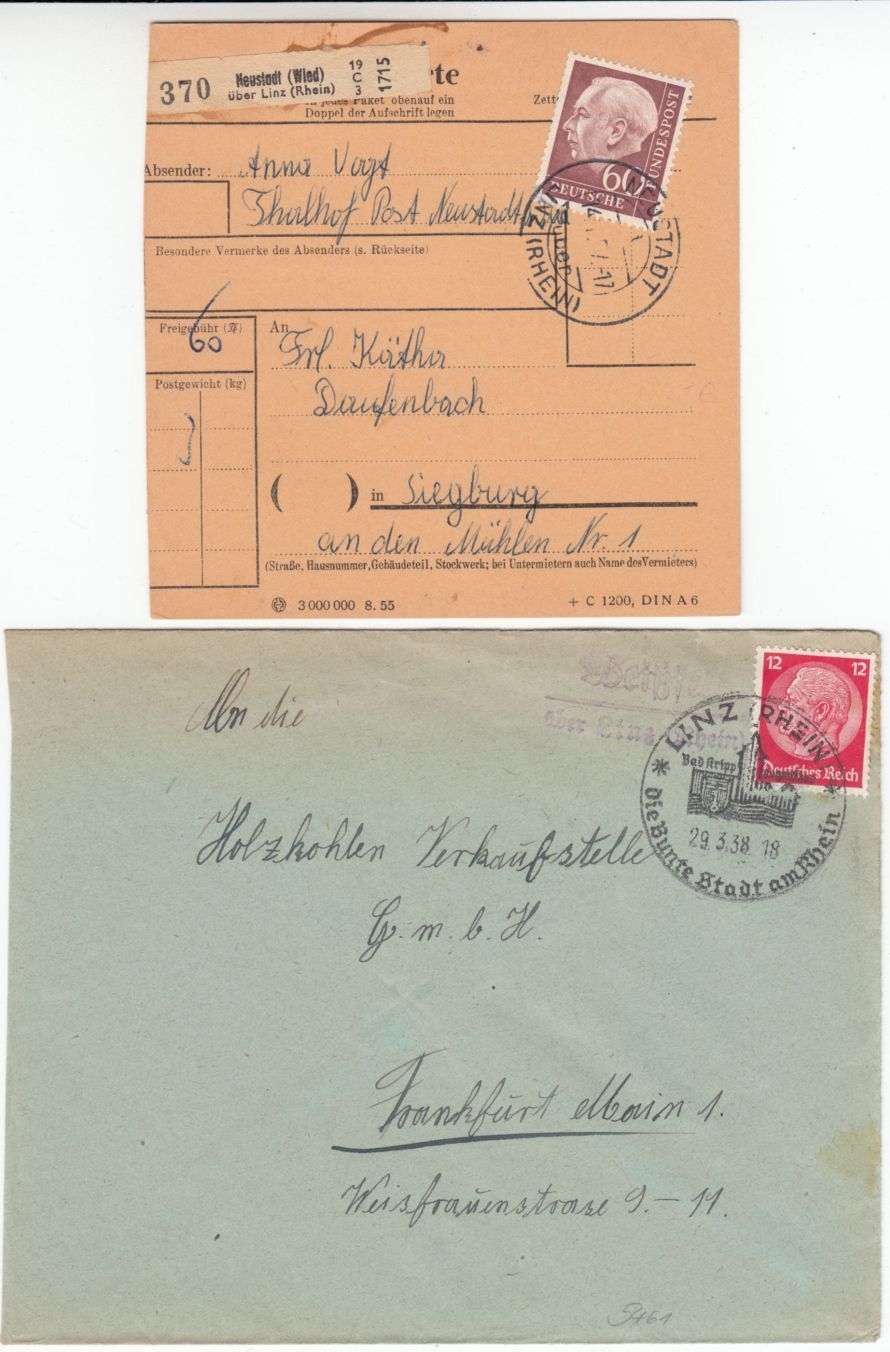 370
Neustadt (Wied)
über Linz (Rhein)
19
C
3
1715
rte
In jedes Paket obenauf ein
Doppel der Aufschrift legen
Zett
60
DEUTSCHE
BUNDESPOST
NEUSTADT
(RHEIN)
17
Absender: Anna Vogt
Thalhof Post Neustadt
Besondere Vermerke des Absenders (s. Rückseite)
Freigebühr
60
Postgewicht (kg)
An
Frl. Kätha
Daufenbach
( ) in Siegburg
an den Mühlen Nr. 1
(Straße, Hausnummer, Gebäudeteil, Stockwerk; bei Untermietern auch Name des Vermieters)
3 000 000 8. 55
+ C 1200, DIN A 6
über Linz (Rhein)
12 12
Deutsches Reich
* LINZ (RHEIN) *
Bad Kripp
29.3.38. 18
Die Bunte Stadt am Rhein
An die
Holzkohlen Verkaufstelle
G. m. b. H.
Frankfurt Main 1.
Weisfrauenstrase 9.-11.
5461